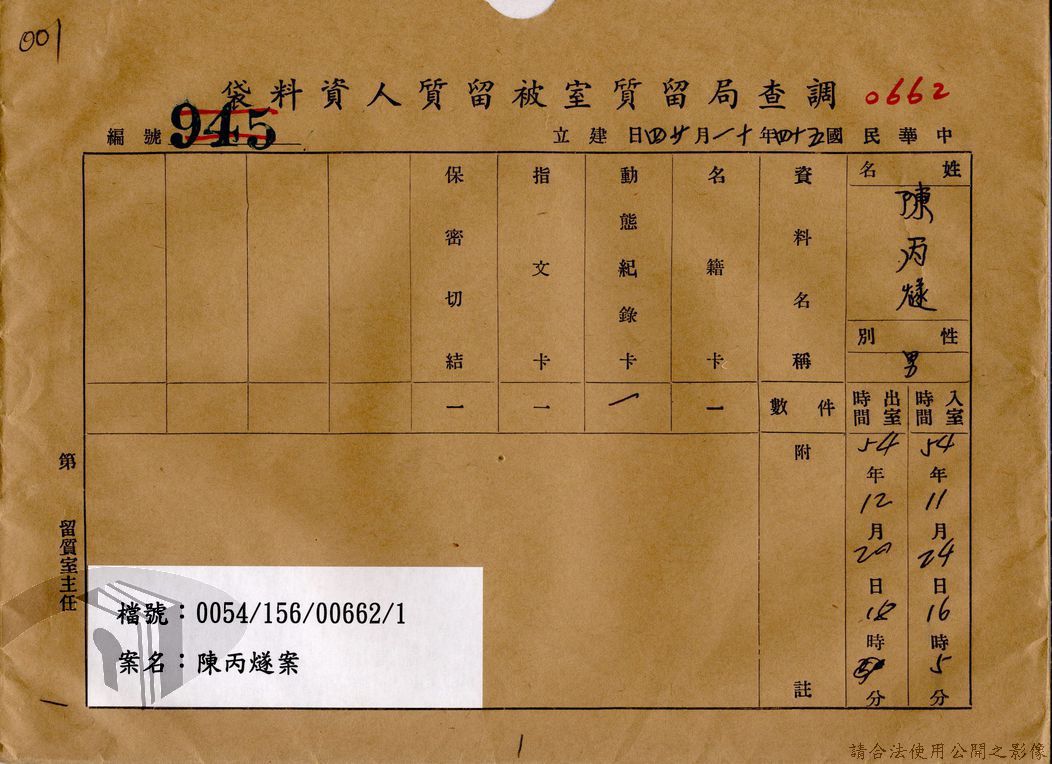 001
調查局留質室被留質人資料袋
0662
中華民國五十四年十一月廿四日建立
編號 945
姓名
陳丙燧
性別
男
入室時間
54年11月24日16時5分
出室時間
54年12月20日18時分
資料名稱
件數
附註
名籍卡
一
動態紀錄卡
一
指文卡
一
保密切結
一
第 留質室主任
檔號：0054/156/00662/1
案名：陳丙燧案
1
請合法使用公開之影像